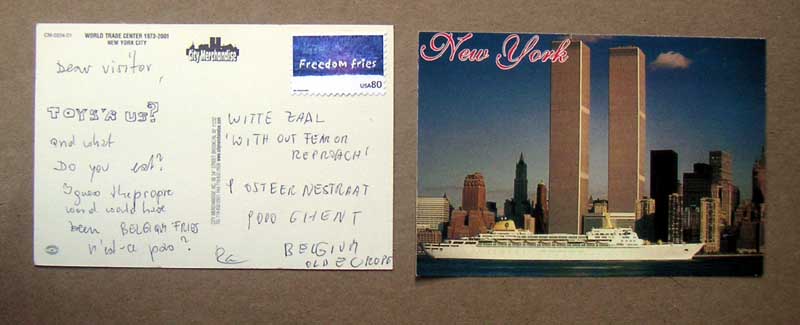 CM-0204-01
WORLD TRADE CENTER 1973-2001
NEW YORK CITY
City Merchandise
Freedom fries
USA80
Dear visitor,
TOYS'R US?
and what
Do you eat?
I guess the propre
word would have
been BELGIUM FRIES
n'est-ce pas?
WITTE ZAAL
'WITH OUT FEAR OR
REPROACH'
9000 GHENT
BELGIUM
OLD EUROPE
New York